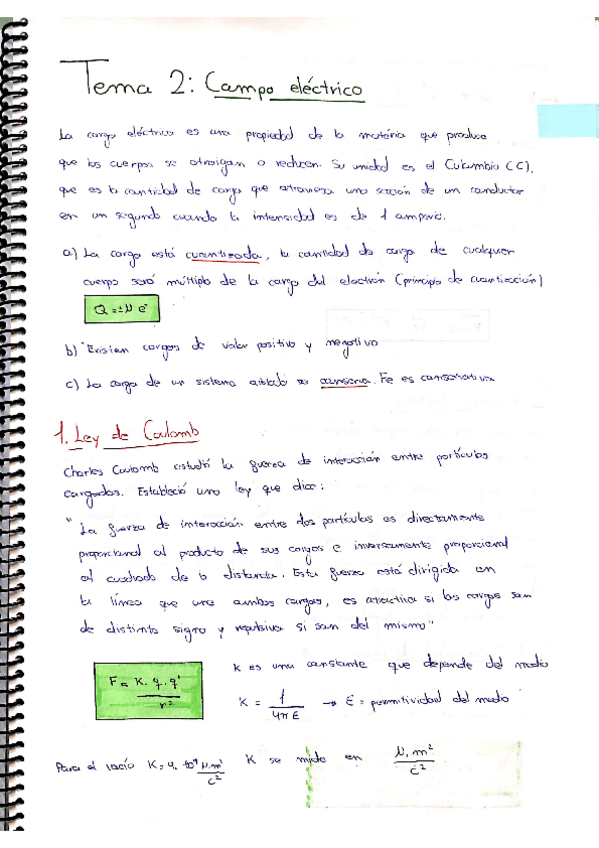 Tema 2: Campo eléctrico
La carga eléctrica es una propiedad de la materia que produce
que los cuerpos se atraigan o reducen. Su unidad es el Culumbio (C),
que es la cantidad de carga que atraviesa una sección de un conductor
en un segundo cuando la intensidad es de 1 amperio.
a) La carga está cuantizada, la cantidad de carga de cualquier
cuerpo será múltiplo de la carga del electrón (principio de cuantización)
Q = ±N e⁻
b) Existen cargas de valor positivo y negativo
c) La carga de un sistema aislado se conserva. Fe es conservativa
1. Ley de Coulomb
Charles Coulomb estudió la fuerza de interacción entre partículas
cargadas. Estableció una ley que dice:
"La fuerza de interacción entre dos partículas es directamente
proporcional al producto de sus cargas e inversamente proporcional
al cuadrado de la distancia. Esta fuerza está dirigida en
la línea que une ambas cargas, es atractiva si las cargas son
de distinto signo y repulsiva si son del mismo"
F = K · q · q' / r²
K es una constante que depende del medio
K = 1 / 4πε → ε = permitividad del medio
Para el vacío K = 9 · 10⁹ N·m² / C² K se mide en N·m² / C²